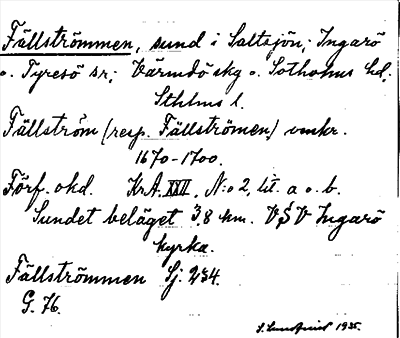 Fällströmmen, sund i Saltsjön; Ingarö
o. Tyresö sr; Värmdö skg o. Sotholms hd,
Sthlms l.
Fällström (resp. Fällströmen) omkr.
1670-1700.
Förf. okd. KrA. XXII, N:o 2, lit. a o. b.
Sundet beläget 3,8 km. VSV Ingarö
kyrka.
Fällströmmen Sj. 234.
G. 76.
1935.